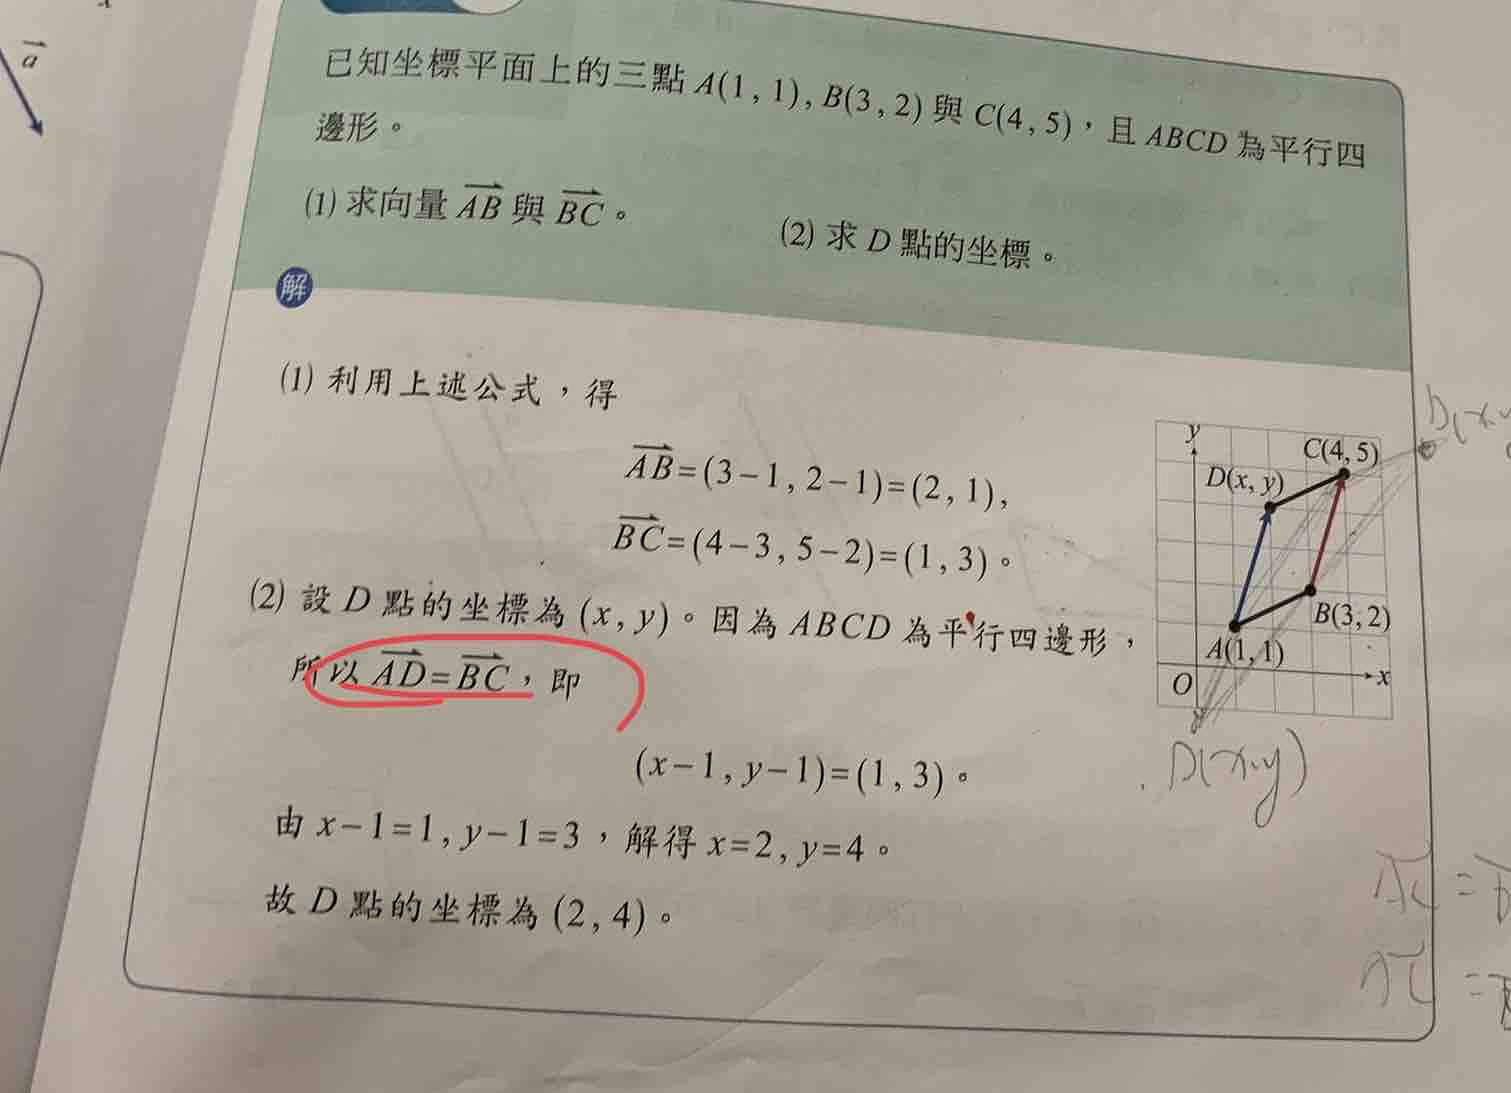 a
已知坐標平面上的三點 A(1, 1), B(3, 2) 與 C(4, 5),且 ABCD 為平行四
邊形。
(1) 求向量 AB 與 BC。
(2) 求 D 點的坐標。
解
(1) 利用上述公式,得
AB=(3-1, 2-1)=(2, 1),
BC=(4-3, 5-2)=(1, 3)。
(2) 設 D 點的坐標為 (x, y)。因為 ABCD 為平行四邊形,
所以 AD=BC,即
(x-1, y-1)=(1, 3)。
由 x-1=1, y-1=3,解得 x=2, y=4。
故 D 點的坐標為 (2, 4)。
y
C(4, 5)
D(x, y)
B(3, 2)
A(1, 1)
O
x
D(x,y)